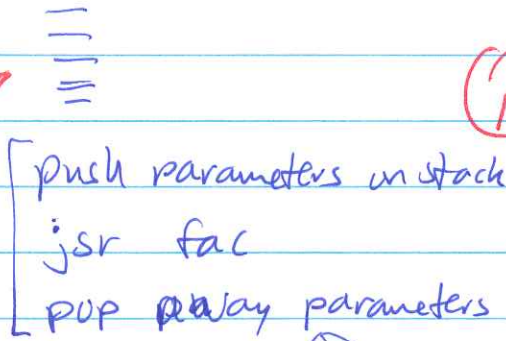 push parameters on stack
jsr fac
pop away parameters